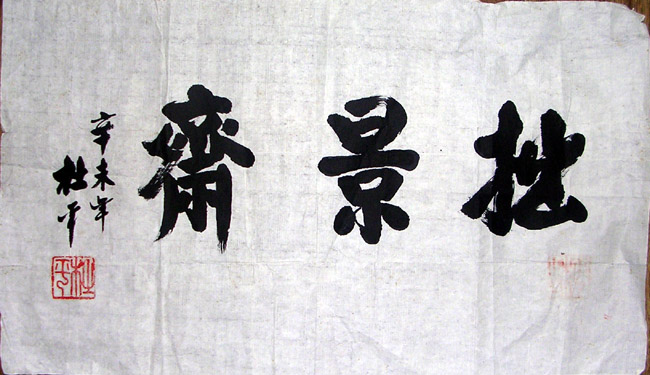 拙景齋
辛未年
杜平
杜平